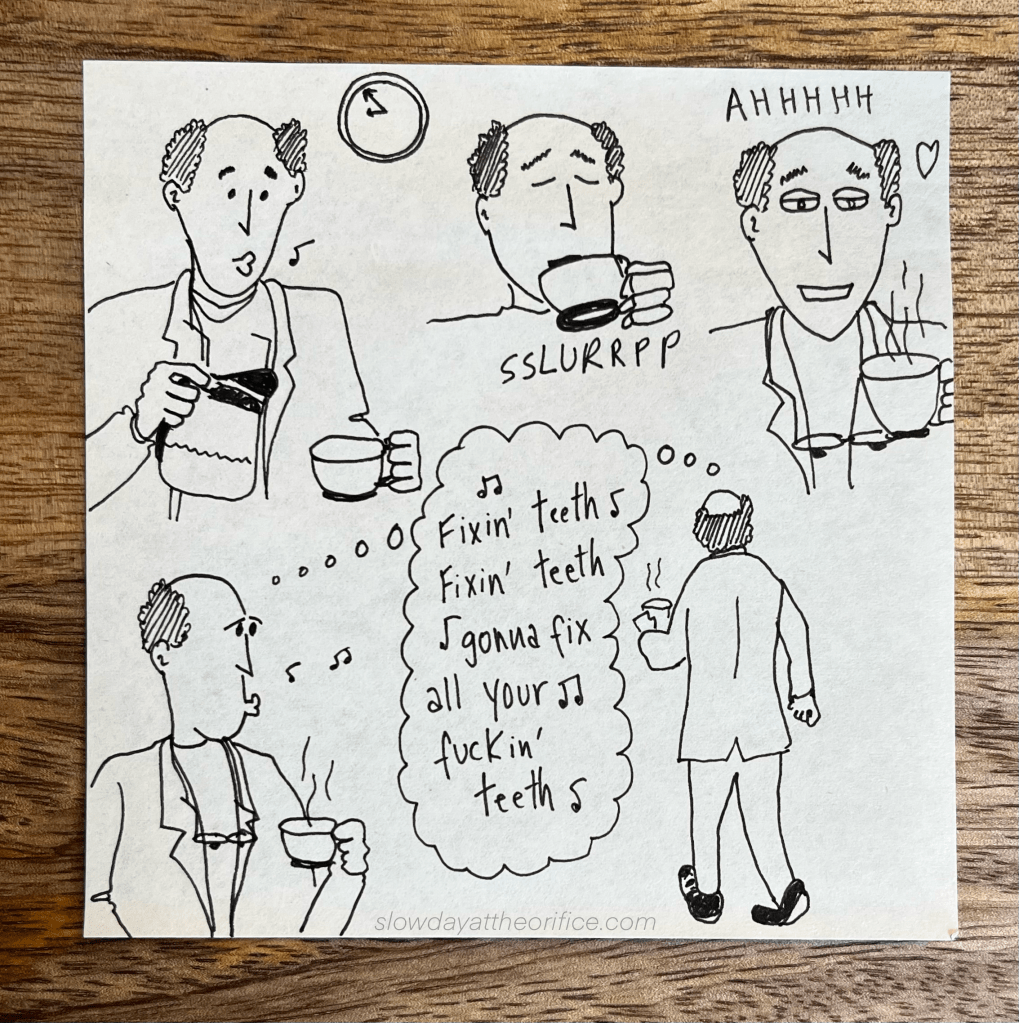 AHHHHH
SSLURRPP
Fixin' teeth
Fixin' teeth
gonna fix
all your
fuckin'
teeth
slowdayattheorifice.com